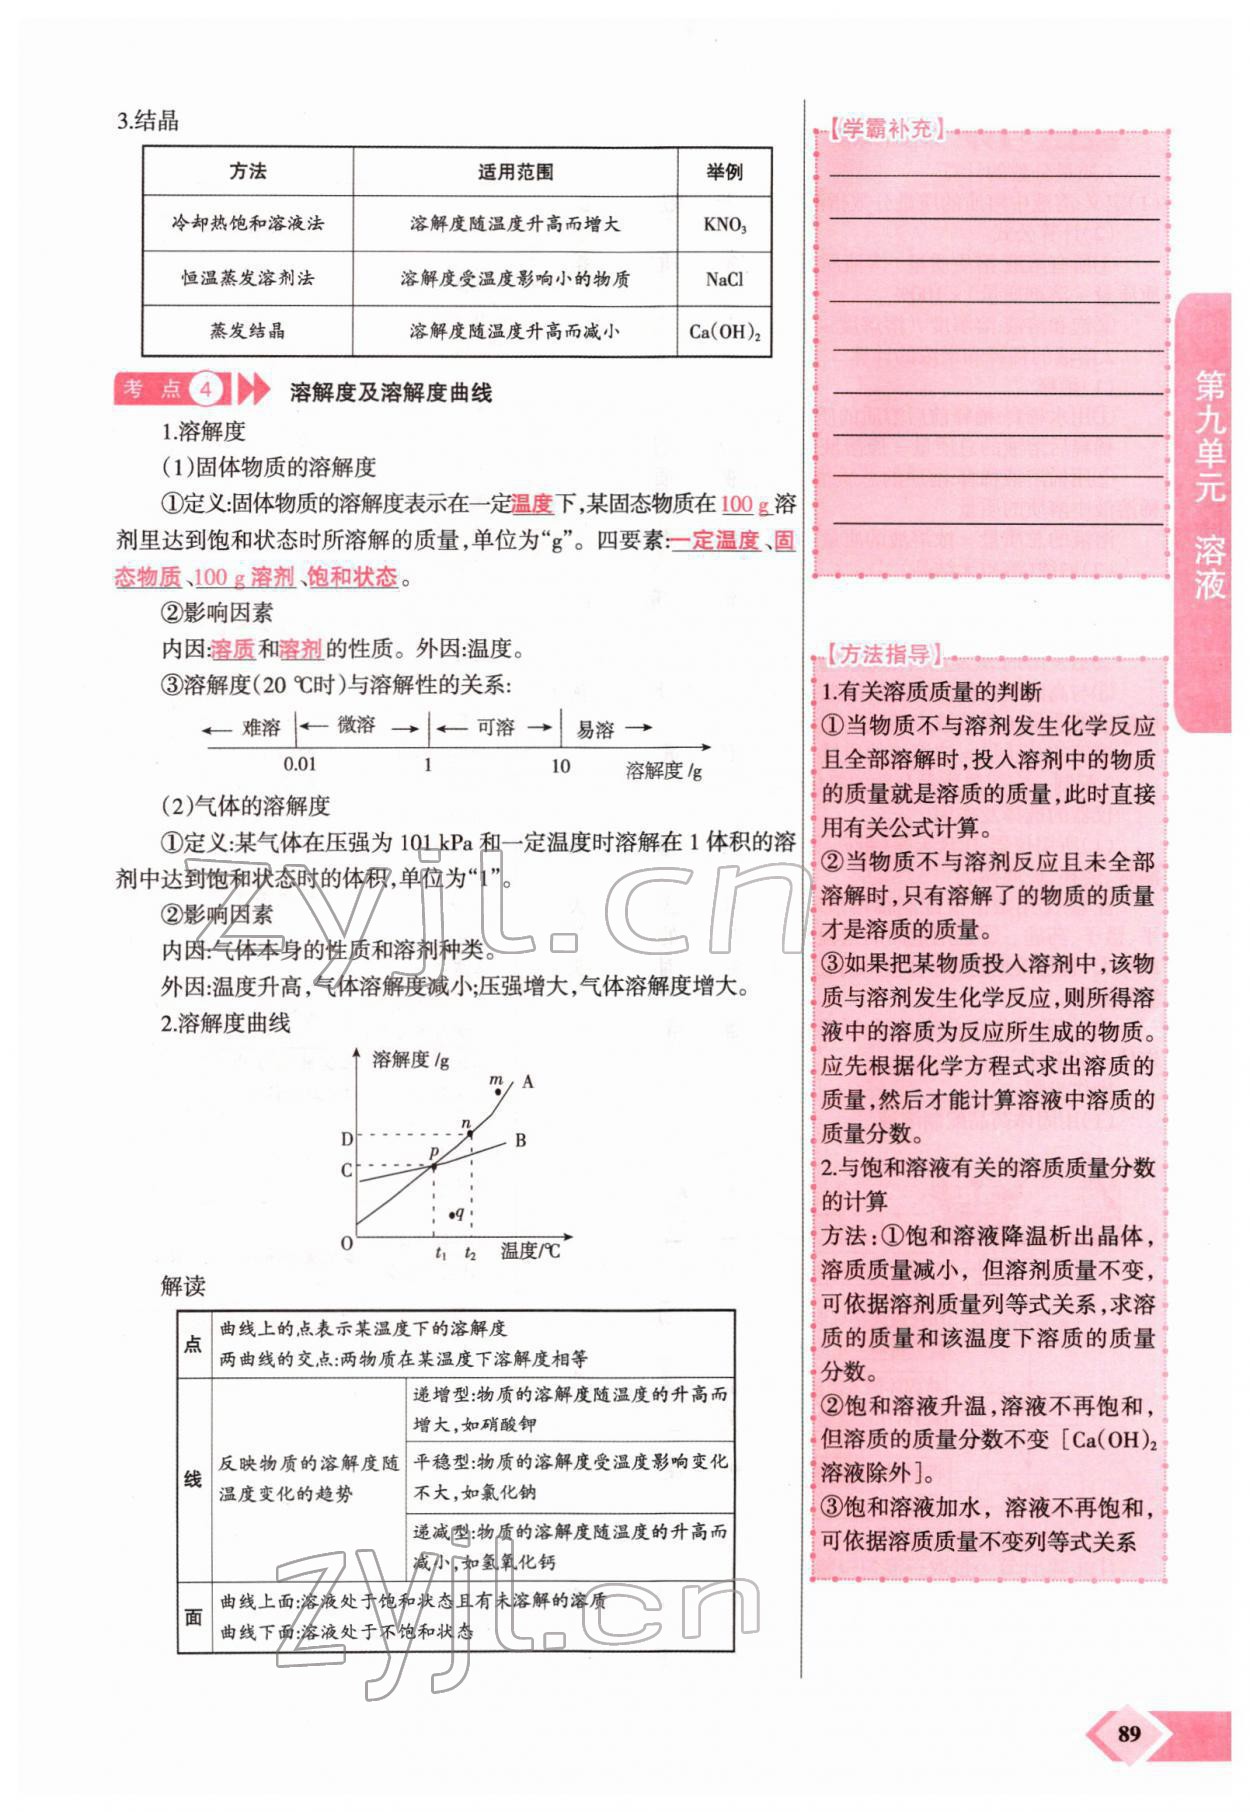 3.结晶
方法 适用范围 举例
冷却热饱和溶液法 溶解度随温度升高而增大 KNO₃
恒温蒸发溶剂法 溶解度受温度影响小的物质 NaCl
蒸发结晶 溶解度随温度升高而减小 Ca(OH)₂
考点4 溶解度及溶解度曲线
1.溶解度
(1)固体物质的溶解度
①定义:固体物质的溶解度表示在一定温度下,某固态物质在100 g溶
剂里达到饱和状态时所溶解的质量,单位为“g”。四要素:一定温度、固
态物质、100 g溶剂、饱和状态。
②影响因素
内因:溶质和溶剂的性质。外因:温度。
③溶解度(20 ℃时)与溶解性的关系:
难溶 微溶 可溶 易溶
0.01 1 10 溶解度/g
(2)气体的溶解度
①定义:某气体在压强为 101 kPa 和一定温度时溶解在 1 体积的溶
剂中达到饱和状态时的体积,单位为“1”。
②影响因素
内因:气体本身的性质和溶剂种类。
外因:温度升高,气体溶解度减小;压强增大,气体溶解度增大。
2.溶解度曲线
溶解度/g
m A
n
D B
p
C
q
O t₁ t₂ 温度/℃
解读
点 曲线上的点表示某温度下的溶解度
两曲线的交点:两物质在某温度下溶解度相等
线 反映物质的溶解度随
温度变化的趋势
递增型:物质的溶解度随温度的升高而
增大,如硝酸钾
平稳型:物质的溶解度受温度影响变化
不大,如氯化钠
递减型:物质的溶解度随温度的升高而
减小,如氢氧化钙
面 曲线上面:溶液处于饱和状态且有未溶解的溶质
曲线下面:溶液处于不饱和状态
【学霸补充】
【方法指导】
1.有关溶质质量的判断
①当物质不与溶剂发生化学反应
且全部溶解时,投入溶剂中的物质
的质量就是溶质的质量,此时直接
用有关公式计算。
②当物质不与溶剂反应且未全部
溶解时,只有溶解了的物质的质量
才是溶质的质量。
③如果把某物质投入溶剂中,该物
质与溶剂发生化学反应,则所得溶
液中的溶质为反应所生成的物质。
应先根据化学方程式求出溶质的
质量,然后才能计算溶液中溶质的
质量分数。
2.与饱和溶液有关的溶质质量分数
的计算
方法:①饱和溶液降温析出晶体,
溶质质量减小, 但溶剂质量不变,
可依据溶剂质量列等式关系,求溶
质的质量和该温度下溶质的质量
分数。
②饱和溶液升温,溶液不再饱和,
但溶质的质量分数不变［Ca(OH)₂
溶液除外］。
③饱和溶液加水, 溶液不再饱和,
可依据溶质质量不变列等式关系
第九单元 溶液
89
zyjl.cn
zyjl.cn